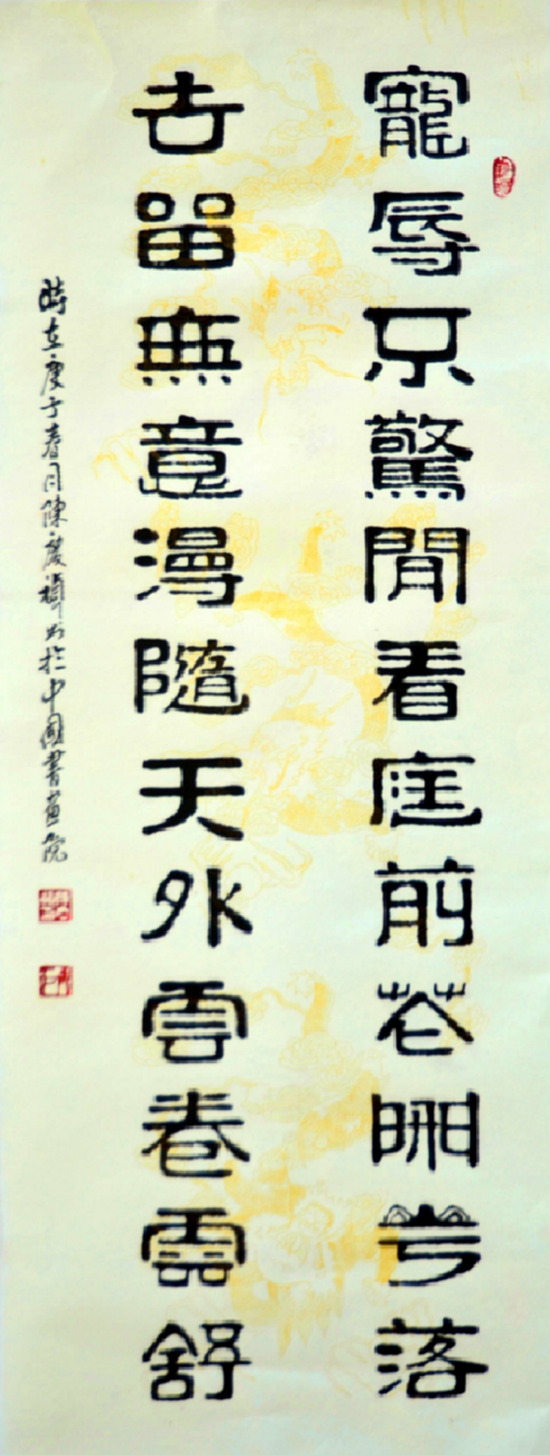 寵辱不驚閒看庭前花開花落
去留無意漫隨天外雲卷雲舒
時在庚子春月陳慶書於中國書畫院